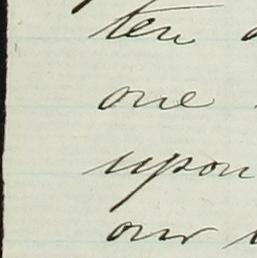 ten
one
upon
our